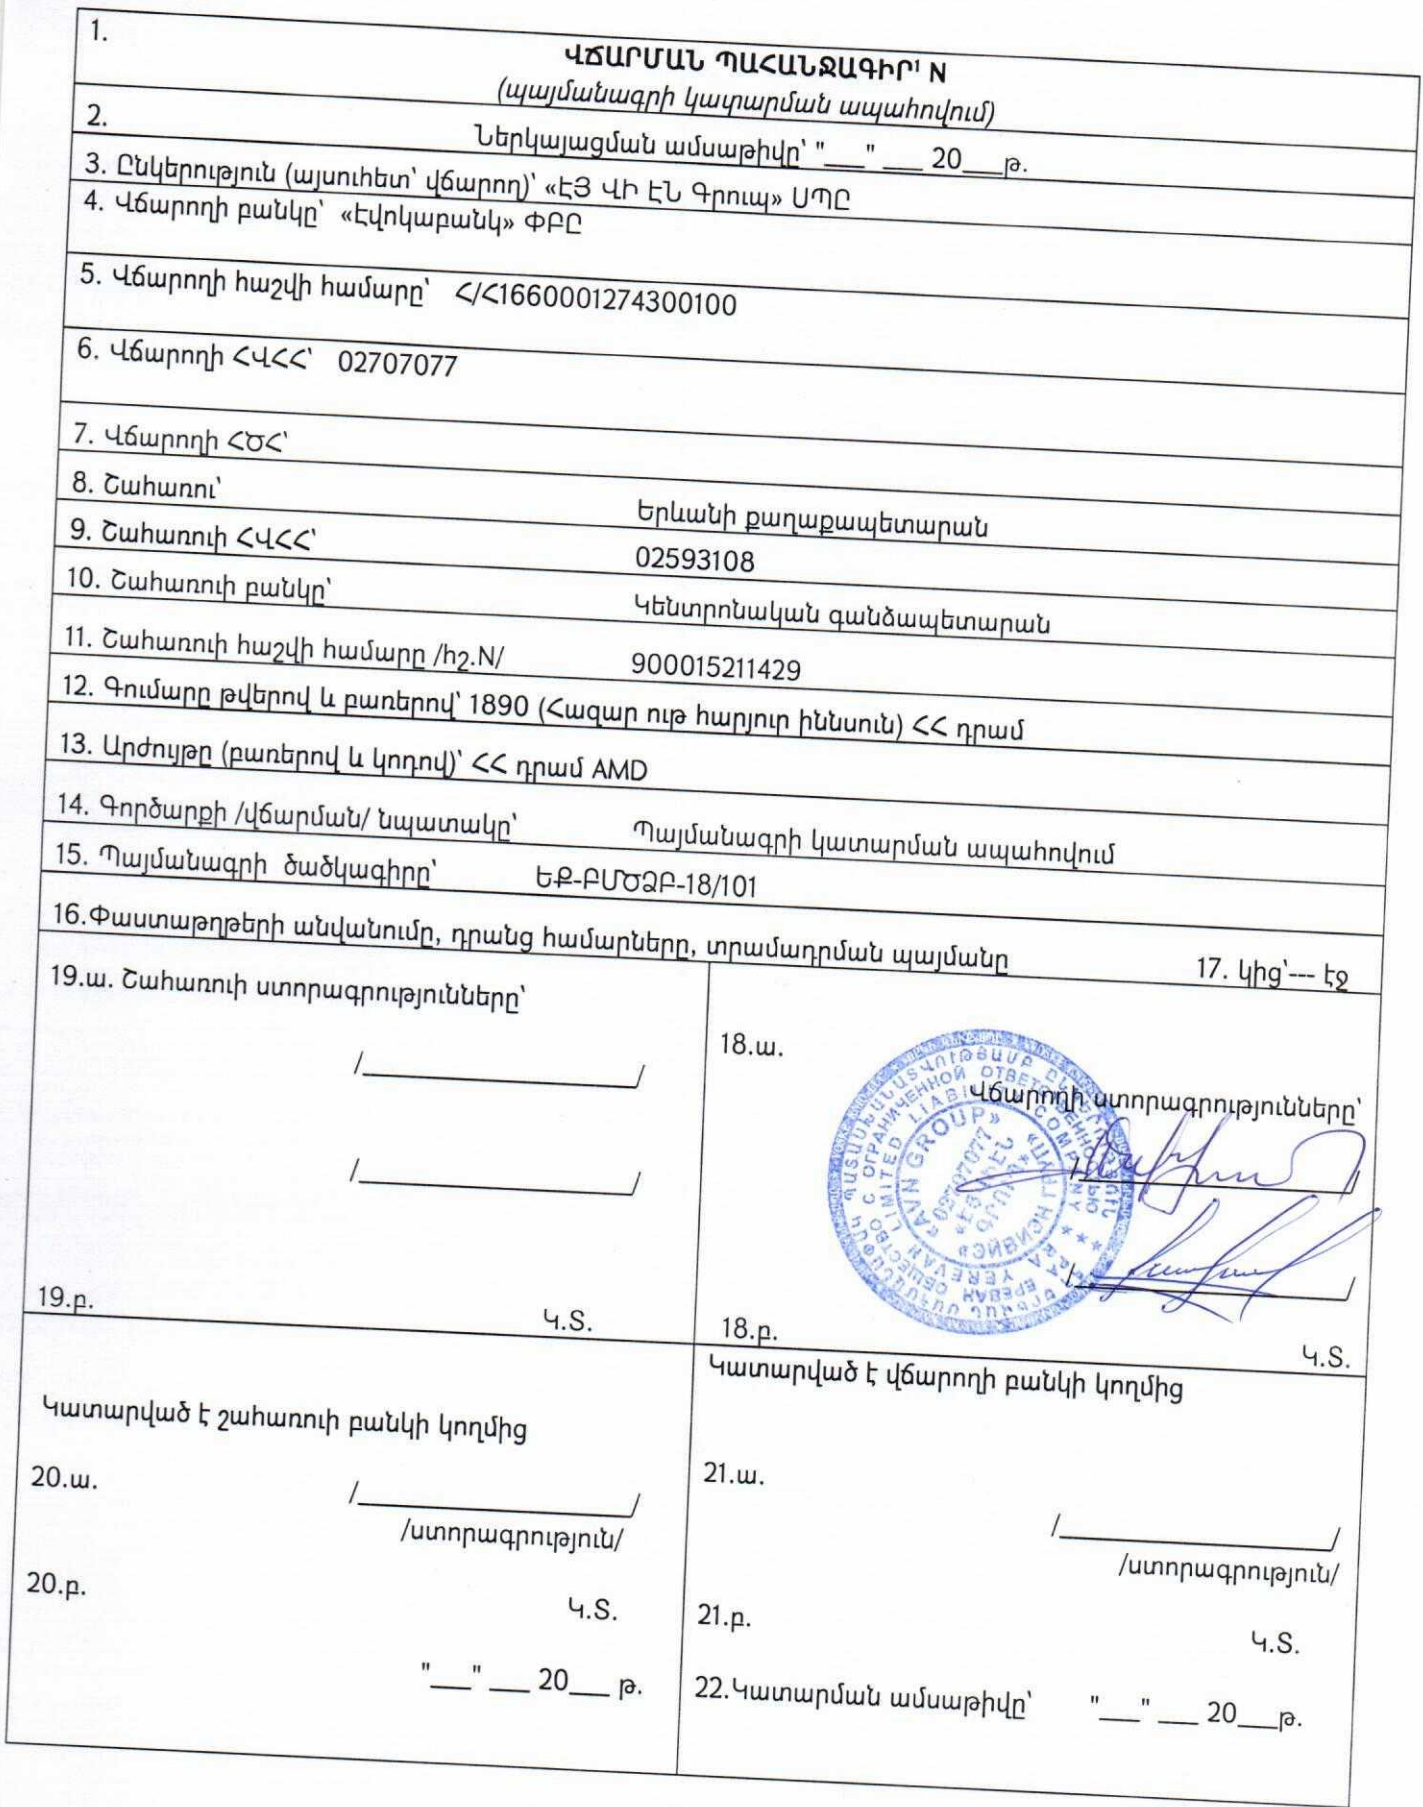 1.
ՎՃԱՐՄԱՆ ՊԱՀԱՆՋԱԳԻՐ¹ N
(պայմանագրի կատարման ապահովում)
2.
Ներկայացման ամսաթիվը՝ "___" ___ 20___թ.
3. Ընկերություն (այսուհետ՝ վճարող)՝ «ԷՅ ՎԻ ԷՆ Գրուպ» ՍՊԸ
4. Վճարողի բանկը՝ «Էվոկաբանկ» ՓԲԸ
5. Վճարողի հաշվի համարը՝ Հ/Հ1660001274300100
6. Վճարողի ՀՎՀՀ՝ 02707077
7. Վճարողի ՀԾՀ՝
8. Շահառու՝ Երևանի քաղաքապետարան
9. Շահառուի ՀՎՀՀ՝ 02593108
10. Շահառուի բանկը՝ Կենտրոնական գանձապետարան
11. Շահառուի հաշվի համարը /հշ.N/ 900015211429
12. Գումարը թվերով և բառերով՝ 1890 (Հազար ութ հարյուր իննսուն) ՀՀ դրամ
13. Արժույթը (բառերով և կոդով)՝ ՀՀ դրամ AMD
14. Գործարքի /վճարման/ նպատակը՝ Պայմանագրի կատարման ապահովում
15. Պայմանագրի ծածկագիրը՝ ԵՔ-ԲՄԾՁԲ-18/101
16.Փաստաթղթերի անվանումը, դրանց համարները, տրամադրման պայմանը 17. կից՝--- էջ
19.ա. Շահառուի ստորագրությունները՝
/____________/
/____________/
19.բ.
Կ.Տ.
18.ա.
Վճարողի ստորագրությունները՝
/____________/
/____________/
18.բ.
Կ.Տ.
С ОГРАНИЧЕННОЙ ОТВЕТСТВЕННОСТЬЮ
LIMITED LIABILITY COMPANY
«AVN GROUP»
02707077
«ԷՅ ՎԻ ԷՆ
ԳՐՈՒՊ»
YEREVAN
ЕРЕВАН ОБЩЕСТВО
Կատարված է շահառուի բանկի կողմից
20.ա.
/____________/
/ստորագրություն/
20.բ.
Կ.Տ.
"___" ___ 20___ թ.
Կատարված է վճարողի բանկի կողմից
21.ա.
/____________/
/ստորագրություն/
21.բ.
Կ.Տ.
22.Կատարման ամսաթիվը՝ "___" ___ 20___թ.